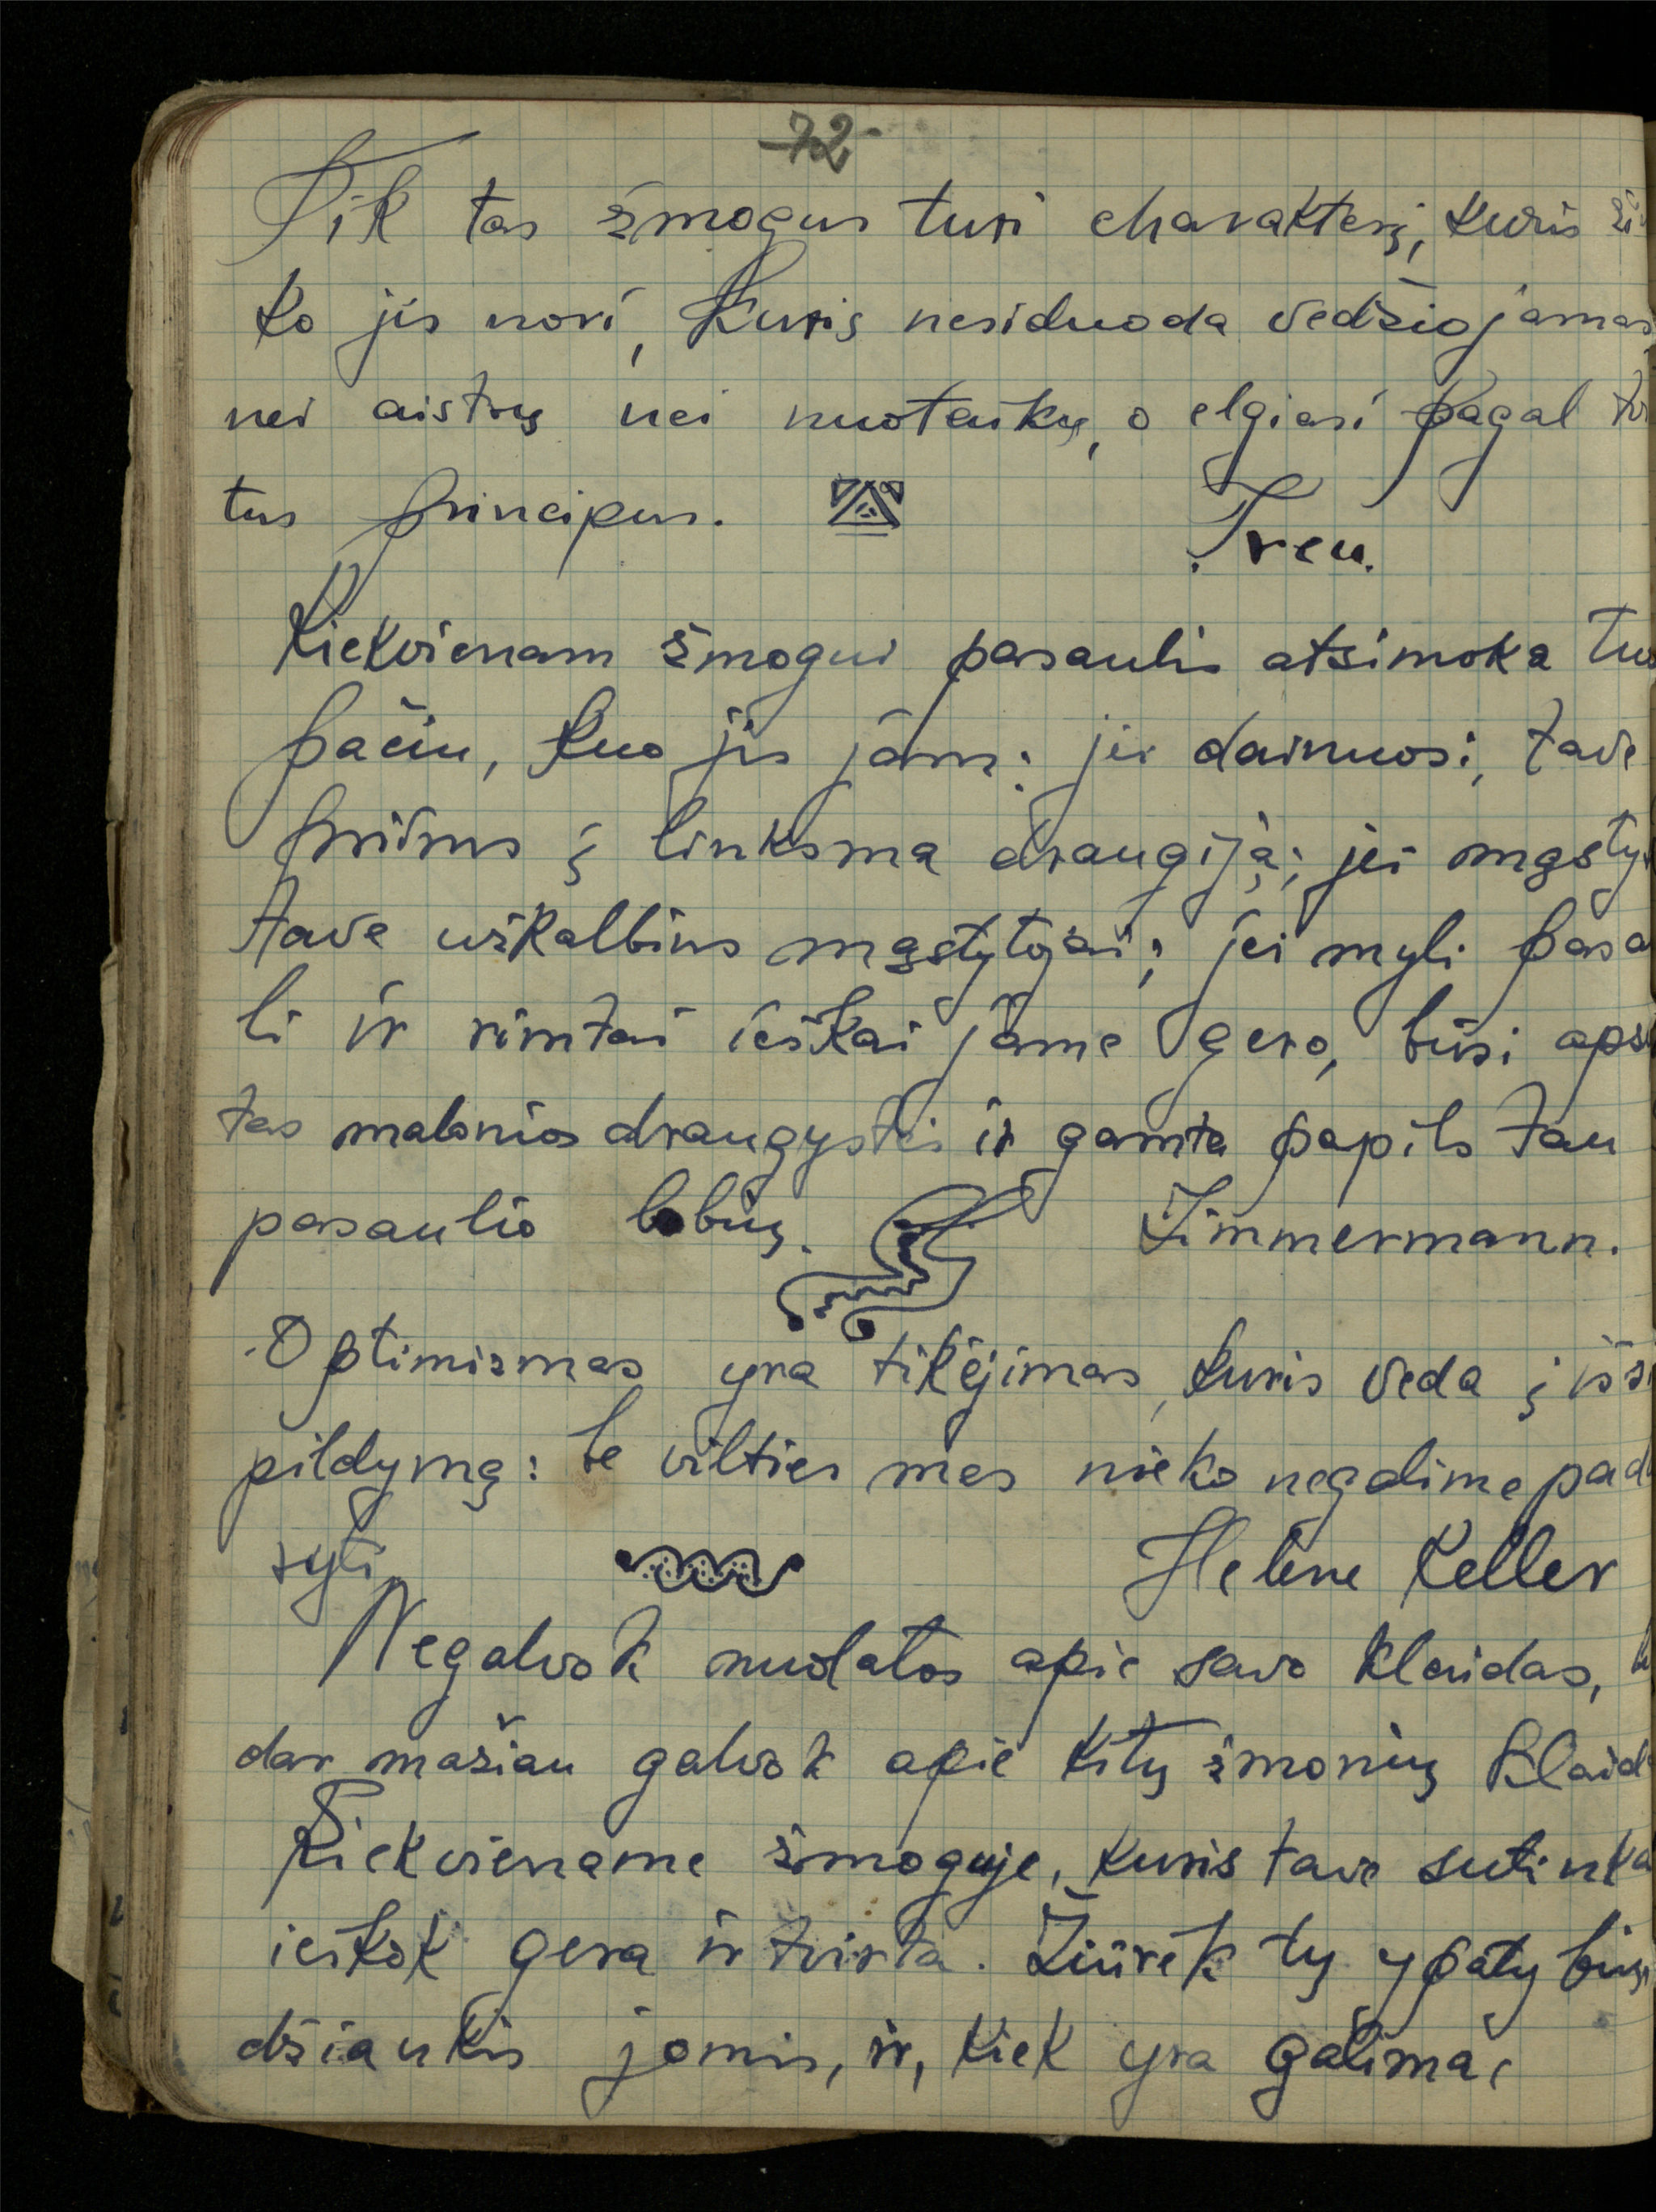 -72-
Tik tas žmogus turi charakterį, kuris ži
ko jis nori, kuris nesiduoda vedžiojamas
nei aistrų nei nuotaikų, o elgiasi pagal
tus principus.
Treu.
Kiekvienam žmogui pasaulis atsimoka tuo
pačiu, kuo jis jam: jei dainuosi, tave
priims į linksma draugiją; jei mąsty
tave užkalbins mąstytojai; jei myli pasa
li ir rimtai ieškai jame gero, būsi aps
tas malonios draugystės ir gamta papils tau
pasaulio lobių.
Zimmermann.
Optimizmas yra tikėjimas, kuris veda į išsi
pildymą: be vilties mes nieko negalime pad
ryti.
Helene Keller
Negalvok nuolatos apie savo klaidas,
dar mažiau galvok apie kitų žmonių klaid
Kiekviename žmoguje, kuris tave sutinka
ieškok gera ir tvirta. Žiūrėk tų ypatybių,
džiaukis jomis, ir, kiek yra galima,